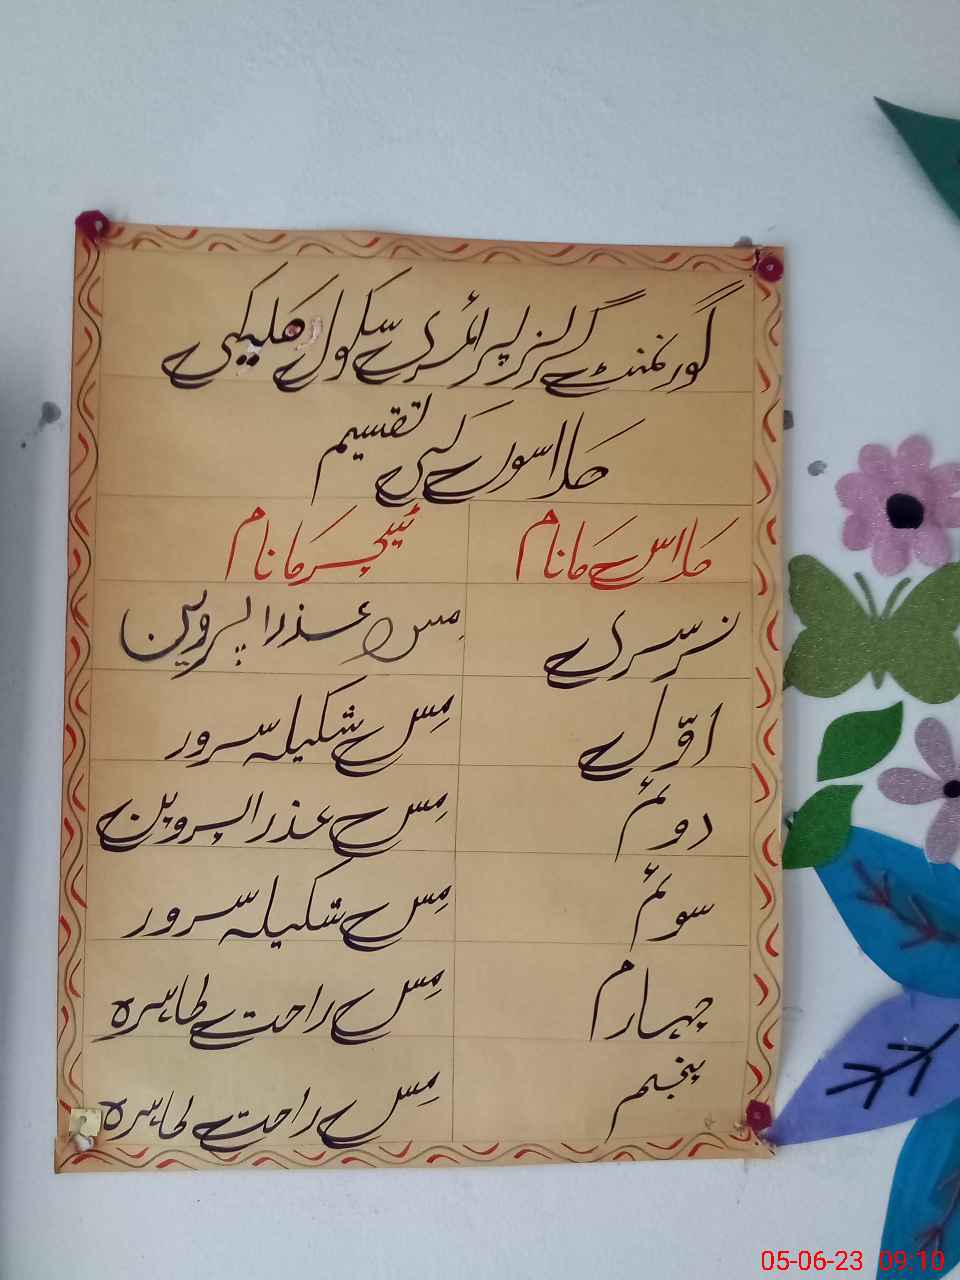 گورنمنٹ گرلز پرائمری سکول ھلیکی
کلاسوں کی تقسیم
کلاس کا نام ٹیچر کا نام
نرسری مِس عذرا پروین
اوّل مِس شکیلہ سرور
دوئم مِس عذرا پروین
سوئم مِس شکیلہ سرور
چہارم مِس راحت طاہرہ
پنجم مِس راحت طاہرہ
05-06-23 09:10